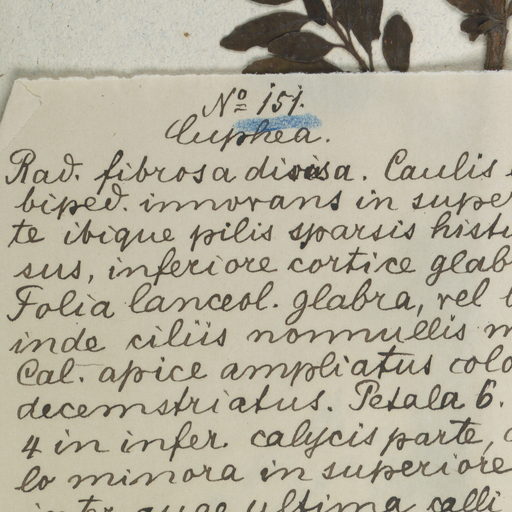 No 151.
Cuphea.
Rad. fibrosa divisa. Caulis
biped. innovans in super
te ibique pilis sparsis hist
sus, inferiore cortice glab
Folia lanceol. glabra, vel
inde ciliis nonnullis m
Cal. apice ampliatus colo
decemstriatus. Petala 6.
4 in infer. calycis parte,
lo minora in superiore
inter quae ultima calli